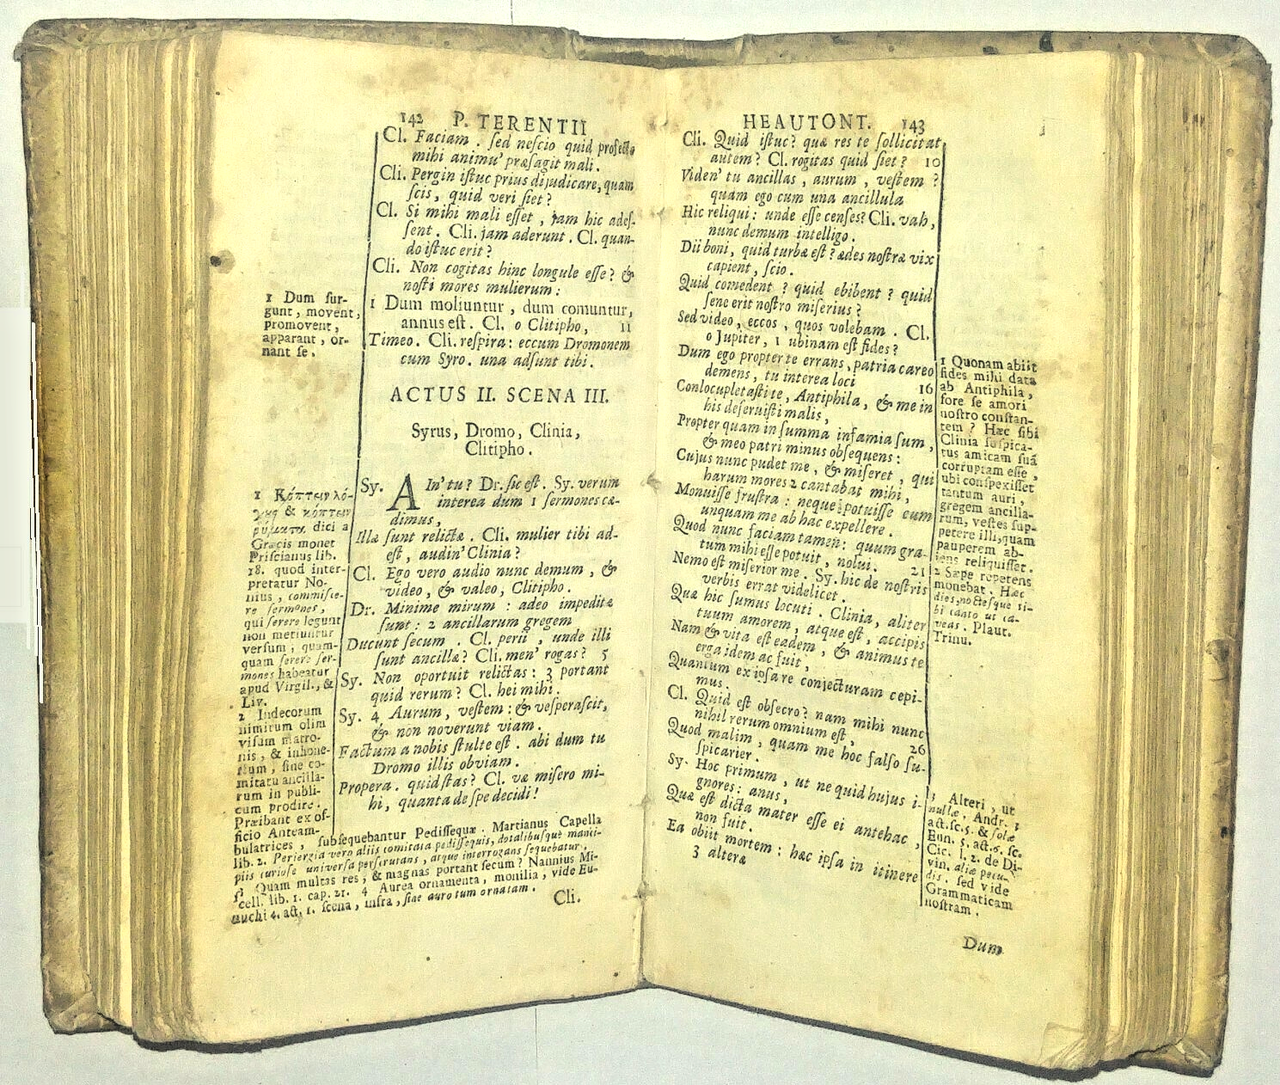 142 P. TERENTII
Cl. Faciam . sed nescio quid profecto
mihi animu' præsagit mali.
Cli. Pergin istuc prius dijudicare, quam
scis, quid veri siet?
Cl. Si mihi mali esset , jam hic ades-
sent . Cli. jam aderunt . Cl. quan-
do istuc erit?
Cli. Non cogitas hinc longule esse? &
nosti mores mulierum:
1 Dum moliuntur , dum comuntur,
annus est . Cl. o Clitipho, 11
Timeo. Cli. respira: eccum Dromonem
cum Syro. una adsunt tibi.
1 Dum sur-
gunt, movent,
promovent,
apparant, or-
nant se.
ACTUS II. SCENA III.
Syrus, Dromo, Clinia,
Clitipho.
Sy. AIn' tu? Dr. sic est. Sy. verum
interea dum 1 sermones cæ-
dimus,
Illæ sunt relictæ . Cli. mulier tibi ad-
est, audin' Clinia?
Cl. Ego vero audio nunc demum , &
video, & valeo, Clitipho.
Dr. Minime mirum : adeo impeditæ
sunt: 2 ancillarum gregem
Ducunt secum . Cl. perii , unde illi
sunt ancillæ? Cli. men' rogas? 5
Sy. Non oportuit relictas : 3 portant
quid rerum? Cl. hei mihi.
Sy. 4 Aurum, vestem: & vesperascit,
& non noverunt viam.
Factum a nobis stulte est . abi dum tu
Dromo illis obviam.
Propera. quid stas? Cl. væ misero mi-
hi, quanta de spe decidi!
1 Κόπτειν λό-
γους & κόπτειν
ῥήματα, dici a
Græcis monet
Priscianus lib.
18. quod inter-
pretatur No-
nius , commisce-
re sermones,
qui serere legunt
non metiuntur
versum , quam-
quam serere ser-
mones habeatur
apud Virgil., &
Liv.
2 Indecorum
nimirum olim
visum matro-
nis, & inhone-
stum , sine co-
mitatu ancilla-
rum in publi-
cum prodire.
Præibant ex of-
ficio Anteam-
bulatrices , subsequebantur Pedissequæ . Martianus Capella
lib. 2. Periergia vero aliis comitata pedissequis, dotalibusque manci-
piis curiose universa perscrutans , atque interrogans sequebatur.
3 Quam multas res, & magnas portant secum? Nannius Mi-
scell. lib. 1. cap. 21. 4 Aurea ornamenta, monilia, vide Eu-
nuchi 4. act. 1. scena , infra , sine auro tum ornatam .
Cli.
HEAUTONT. 143
Cli. Quid istuc? quæ res te sollicitat
autem? Cl. rogitas quid siet? 10
Viden' tu ancillas , aurum , vestem ?
quam ego cum una ancillula
Hic reliqui: unde esse censes? Cli. vah,
nunc demum intelligo.
Dii boni, quid turbæ est? ædes nostræ vix
capient, scio.
Quid comedent ? quid ebibent ? quid
sene erit nostro miserius?
Sed video, eccos , quos volebam . Cl.
o Jupiter, 1 ubinam est fides?
Dum ego propter te errans, patria careo
demens, tu interea loci 16
Conlocupletasti te, Antiphila, & me in
his deseruisti malis,
Propter quam in summa infamia sum,
& meo patri minus obsequens:
Cujus nunc pudet me, & miseret , qui
harum mores 2 cantabat mihi,
Monuisse frustra : neque potuisse eum
unquam me ab hac expellere.
Quod nunc faciam tamen: quum gra-
tum mihi esse potuit, nolui. 21
Nemo est miserior me. Sy. hic de nostris
verbis errat videlicet.
Quæ hic sumus locuti . Clinia, aliter
tuum amorem, atque est, accipis
Nam & vita est eadem, & animus te
erga idem ac fuit,
Quantum ex ipsa re conjecturam cepi-
mus.
Cl. Quid est obsecro? nam mihi nunc
nihil rerum omnium est, 26
Quod malim, quam me hoc falso su-
spicarier.
Sy. Hoc primum , ut ne quid hujus i-
gnores: anus,
Quæ est dicta mater esse ei antehac ,
non fuit.
Ea obiit mortem : hæc ipsa in itinere
3 alteræ
1 Quonam abiit
fides mihi data
ab Antiphila ,
fore se amori
nostro constan-
tem ? Hæc sibi
Clinia suspica-
tus amicam suã
corruptam esse ,
ubi conspexisset
tantum auri ,
gregem ancilla-
rum, vestes sup-
petere illi, quam
pauperem ab-
iens reliquisset.
2 Sæpe repetens
monebat . Hæc
dies, noctesque ti-
bi canto ut ca-
veas . Plaut.
Trinu.
3 Alteri , ut
nullæ. Andr. 3
act. sc. 5. & solæ
Eun. 5. act. 6. sc.
Cic. l. 2. de Di-
vin. aliæ pecu-
dis. sed vide
Grammaticam
nostram .
Dum